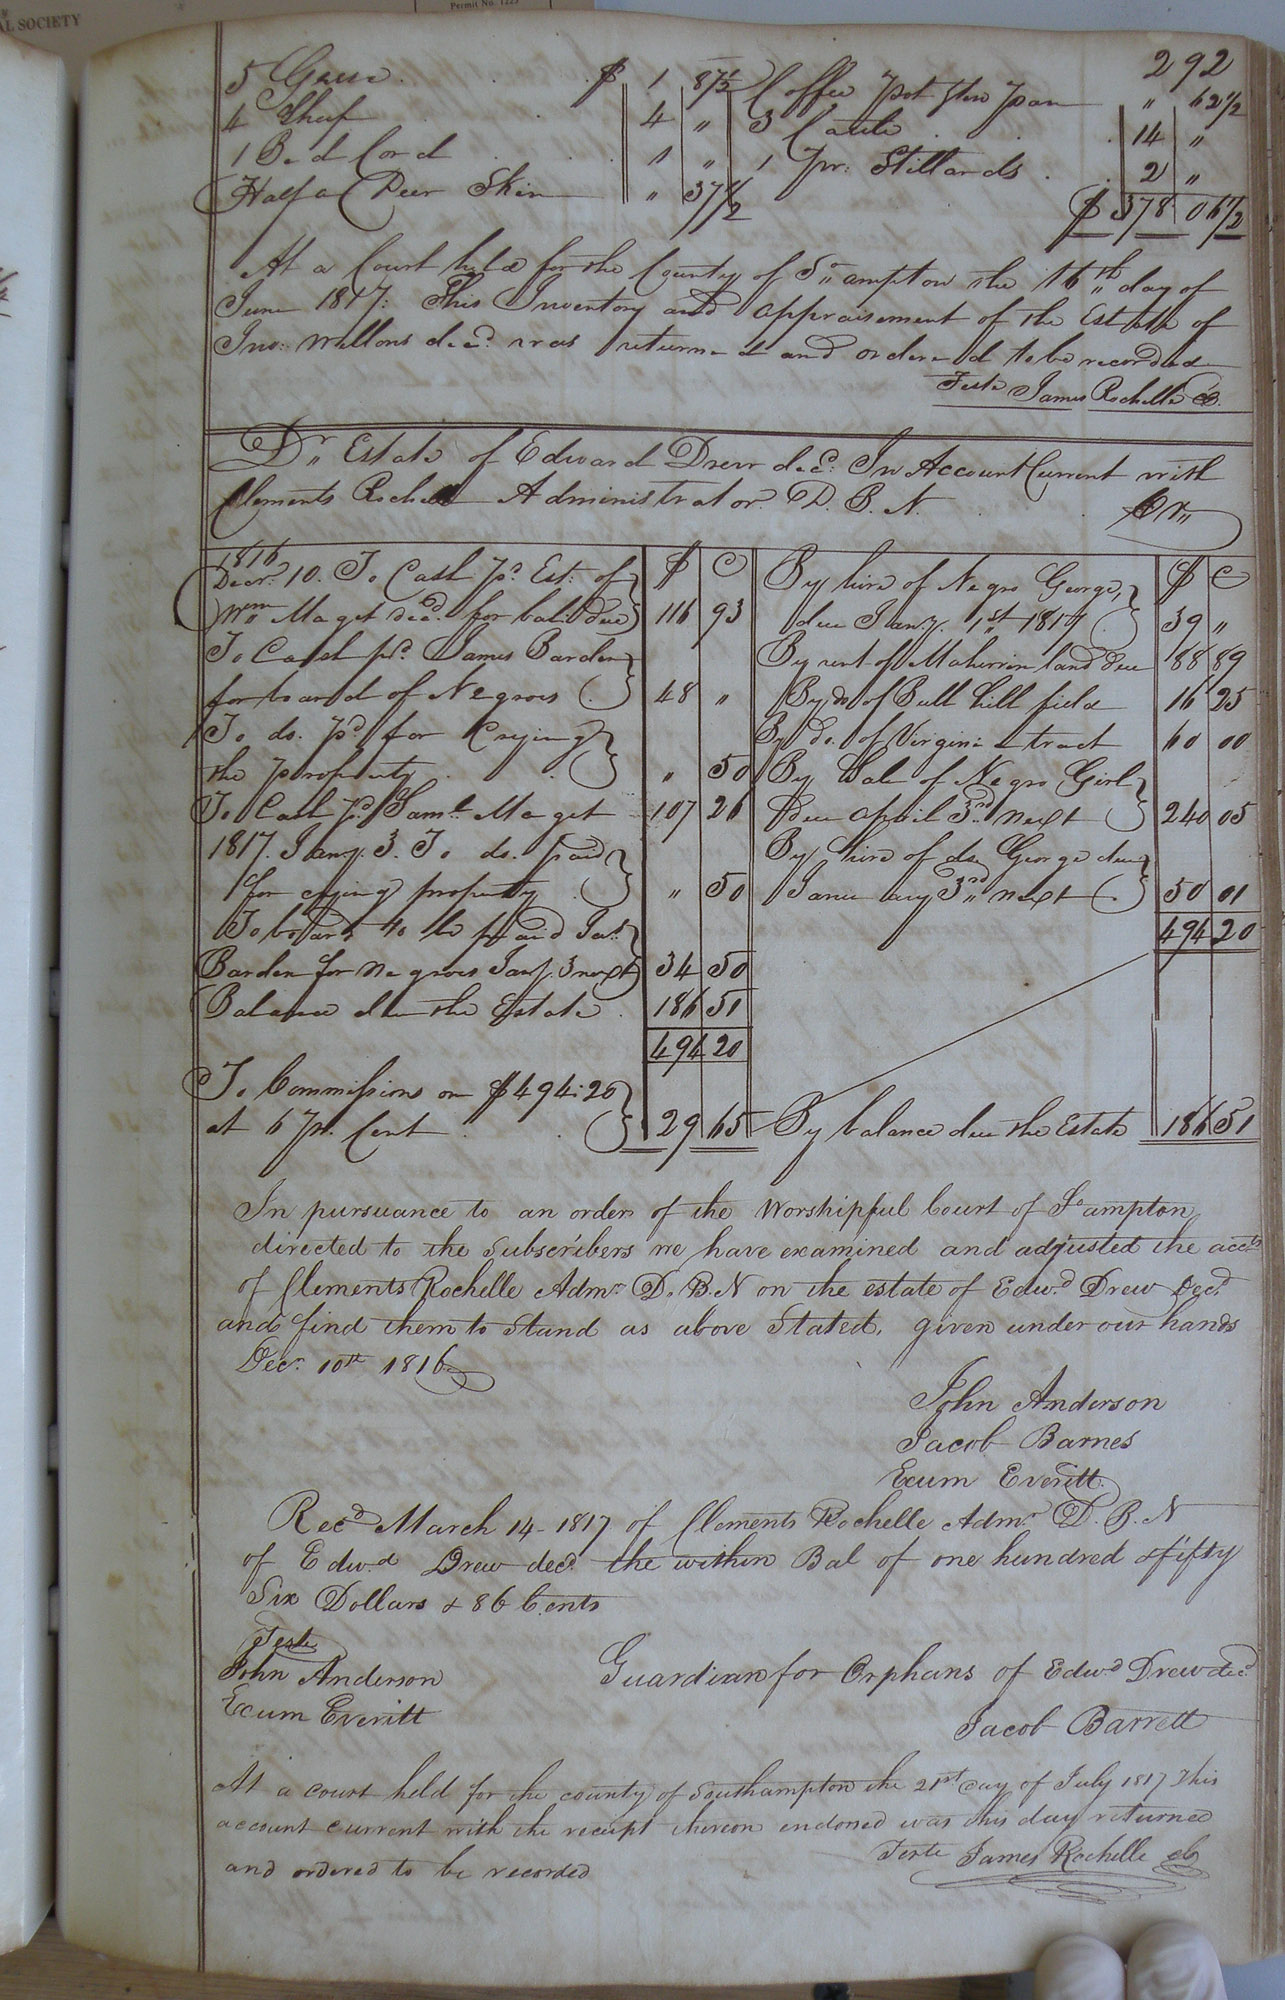 AL SOCIETY
Permit No. 1225
292
5 Geese . . . $ 1 87 1/2 Coffee pot & tin pan " 62 1/2
4 Sheep . . 4 " 3 Cattle . . . 14 "
1 Bed Cord . . . 1 " 1 pr: Stillards . . 2 "
Half a Deer Skin " 37 1/2 $ 378 06 1/2
At a Court held for the County of So,,ampton the 16th,, day of
June 1817: This Inventory and Appraisement of the Estate of
Jno: Mellons decd. was returned and ordered to be recorded
Teste James Rochelle CS.
Dr,, Estate of Edward Drew decd: In Account Current with
Clements Rochelle Administrator. D. B. N. . . Cr,,
1816
Decr. 10. To Cash pd. Est: of
Wm Maget decd. for bal: due 116 93
To Cash pd. James Barden
for board of Negroes . 48 "
To do. pd. for Crying
the property . . " 50
To Cash pd. Saml. Maget 107 26
1817. Jany. 3. To do. paid
for crying property . " 50
To board to be paid Jas.
Barden for negroes Jany. 3 next 34 50
Balance due the Estate . 186 51
494 20
To Commissions on $494.20
at 6 pr. Cent . . 29 65
$ C
By hire of Negro George,
due Jany. 1st,, 1817 . 39 "
By rent of Meherrin land due 88 89
By do of Bull hill field 16 25
By do. of Virginia tract 60 00
By Sale of Negro Girl
due April 3rd. next 240 05
By hire of do George due
January 3rd,, next . 50 01
494 20
By balance due the Estate 186 51
In pursuance to an order of the Worshipful Court of So.ampton
directed to the Subscribers we have examined and adjusted the accts
of Clements Rochelle Admr. D. B. N on the estate of Edwd. Drew Decd.
and find them to Stand as above Stated. given under our hands
Decr. 10th 1816
John Anderson
Jacob Barnes
Exum Everitt.
Recd March 14 - 1817 of Clements Rochelle Admr. D. B. N
of Edwd. Drew decd. the within Bal of one hundred & fifty
Six Dollars & 86 Cents
Teste
John Anderson
Exum Everitt
Guardian for Orphans of Edwd Drew decd.
Jacob Barrett
At a court held for the county of Southampton the 21st day of July 1817 This
account current with the receipt thereon endorsed was this day returned
and ordered to be recorded
Teste James Rochelle CS